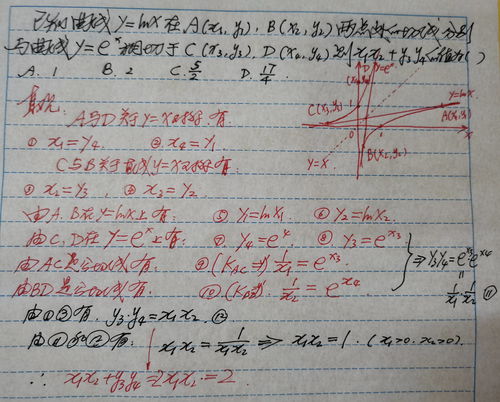 已知曲线 y=lnx 在 A(x₁,y₁), B(x₂,y₂) 两点处的切线分别
与曲线 y=eˣ 相切于 C(x₃,y₃), D(x₄,y₄) 则 x₁x₂+y₃y₄ 的值为( )
A. 1 B. 2 C. 5/2 D. 17/4
A与D关于y=x对称有.
① x₁=y₄. ② x₄=y₁
C与B关于直线y=x对称有.
③ x₂=y₃ . ④ x₃=y₂
由A.B在y=lnx上有: ⑤ y₁=lnx₁. ⑥ y₂=lnx₂.
由C.D在y=eˣ上有: ⑦ y₄=eˣ⁴ ⑧ y₃=eˣ³
由AC是公切线有. ⑨ (K_AC=) 1/x₁=eˣ³.
由BD是公切线有. ⑩ (K_BD=) 1/x₂=eˣ⁴
⇒ y₃y₄=eˣ³eˣ⁴
=
1/x₁·1/x₂ ⑪
由①③有. y₃·y₄=x₁x₂. ⑫
由⑪和⑫有: x₁x₂=1/(x₁x₂) ⇒ x₁x₂=1. (x₁>0. x₂>0).
∴ x₁x₂+y₃y₄=2x₁x₂=2.
D
(x₄,y₄)
y=eˣ
C(x₃,y₃)
y=lnx
A(x₁,y₁)
B(x₂,y₂)
y=x
0
x